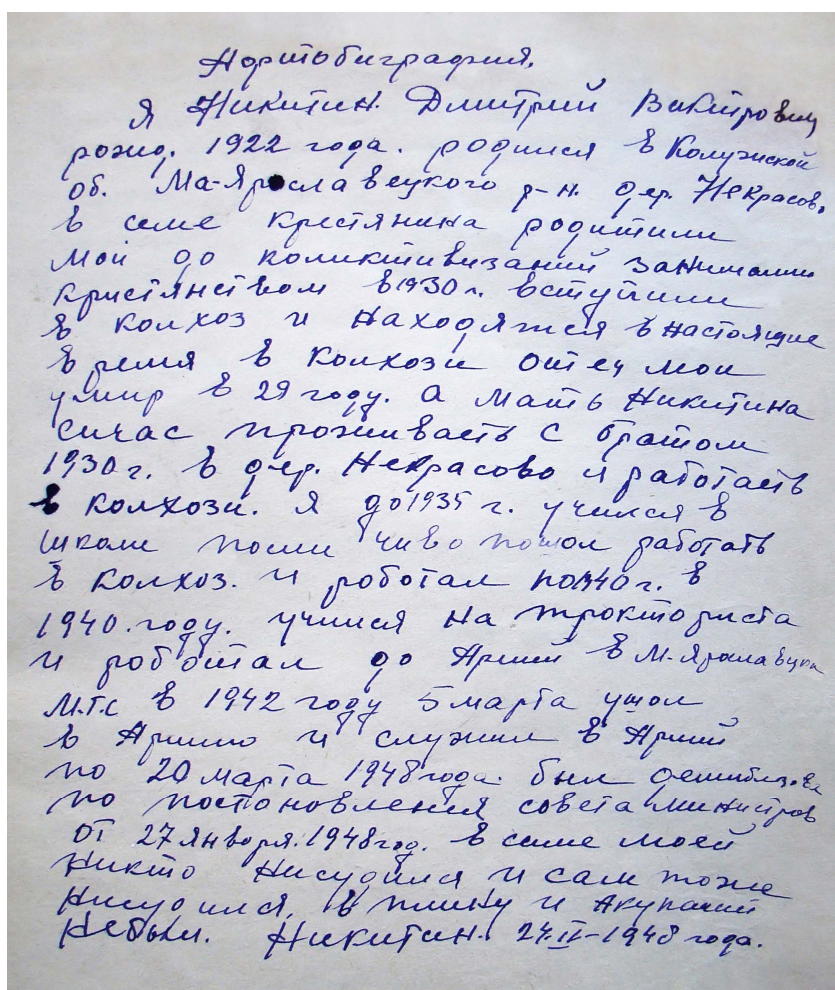 Афтобиграфия.
Я Никитин. Дмитрий Викторович
рожд. 1922 года. родился в Колужской
об. Ма-Ярославецкого р-н. дер. Некрасов.
в семе крестянина родители
мои до коликтивизаций занимались
кристянством в 1930 г. вступили
в колхоз и находятся в настоящие
время в колхози отец мои
умир в 29 году. а мать Никитина
сичас проживаеть с братом
1930 г. в дер. Некрасово и работаеть
в колхози. я до 1935 г. учился в
школи посли чиво пошол работать
в колхоз. и роботал по 1940 г. в
1940. году. учился на тракториста
и роботал до Армий в М-Яраславцкм
М.Т.С в 1942 году 5 марта ушол
в Армию и служил в Армий
по 20 марта 1948 года. был демибилизован
по постоновления совета министров
от 27 января. 1948 год. в семе моей
никто нисудился и сам тоже
нисудился, в плину и акупаций
небыл. Никитин. 24.IV-1948 года.